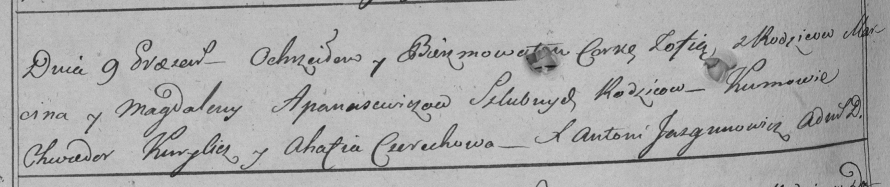 Dnia 9 Ochrzciłem y Bierzmowałem Corkę Zofią, z Rodzicow Mar
cina y Magdaleny Apanasewiczow Szlubnych Rodzicow – Kumowie
Chwiedor Kurylicz y Ahafia Czerechowa – X Antoni Jazgunowicz Adm D.